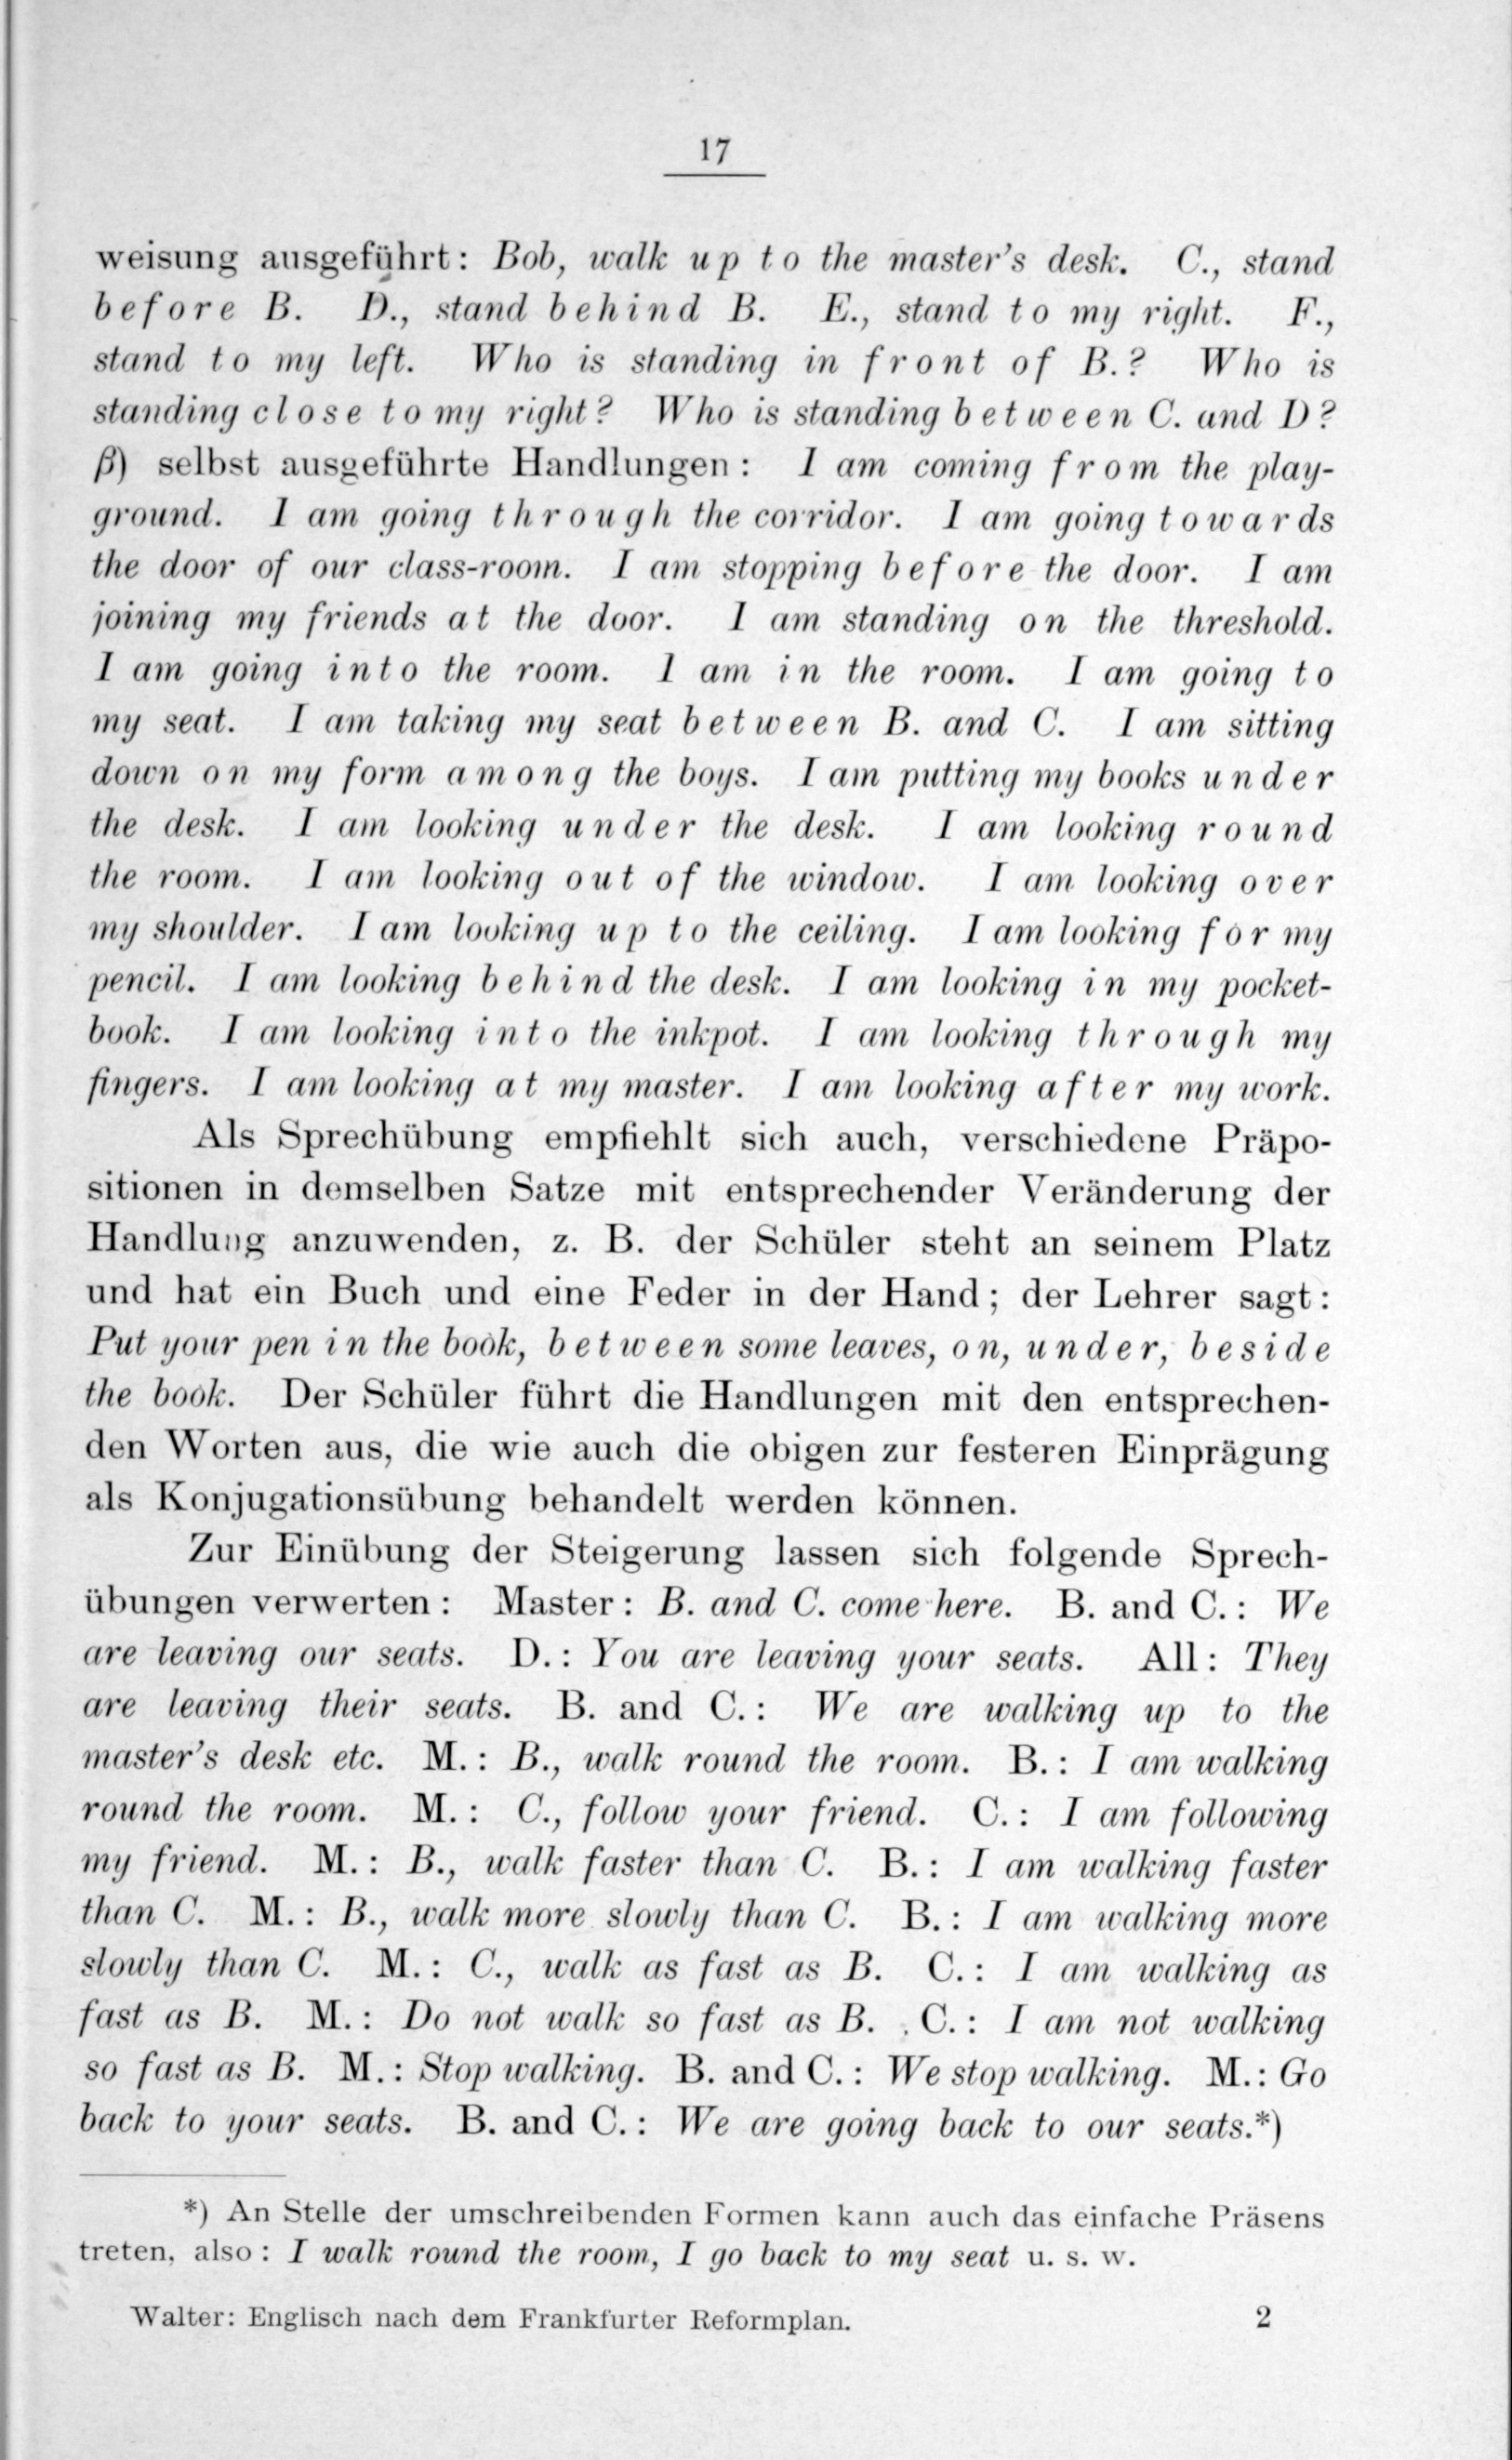 17
weisung ausgeführt: Bob, walk up to the master's desk. C., stand
before B. D., stand behind B. E., stand to my right. F.,
stand to my left. Who is standing in front of B.? Who is
standing close to my right? Who is standing between C. and D?
β) selbst ausgeführte Handlungen: I am coming from the play-
ground. I am going through the corridor. I am going towards
the door of our class-room. I am stopping before the door. I am
joining my friends at the door. I am standing on the threshold.
I am going into the room. I am in the room. I am going to
my seat. I am taking my seat between B. and C. I am sitting
down on my form among the boys. I am putting my books under
the desk. I am looking under the desk. I am looking round
the room. I am looking out of the window. I am looking over
my shoulder. I am looking up to the ceiling. I am looking for my
pencil. I am looking behind the desk. I am looking in my pocket-
book. I am looking into the inkpot. I am looking through my
fingers. I am looking at my master. I am looking after my work.
Als Sprechübung empfiehlt sich auch, verschiedene Präpo-
sitionen in demselben Satze mit entsprechender Veränderung der
Handlung anzuwenden, z. B. der Schüler steht an seinem Platz
und hat ein Buch und eine Feder in der Hand; der Lehrer sagt:
Put your pen in the book, between some leaves, on, under, beside
the book. Der Schüler führt die Handlungen mit den entsprechen-
den Worten aus, die wie auch die obigen zur festeren Einprägung
als Konjugationsübung behandelt werden können.
Zur Einübung der Steigerung lassen sich folgende Sprech-
übungen verwerten: Master: B. and C. come here. B. and C.: We
are leaving our seats. D.: You are leaving your seats. All: They
are leaving their seats. B. and C.: We are walking up to the
master's desk etc. M.: B., walk round the room. B.: I am walking
round the room. M.: C., follow your friend. C.: I am following
my friend. M.: B., walk faster than C. B.: I am walking faster
than C. M.: B., walk more slowly than C. B.: I am walking more
slowly than C. M.: C., walk as fast as B. C.: I am walking as
fast as B. M.: Do not walk so fast as B. C.: I am not walking
so fast as B. M.: Stop walking. B. and C.: We stop walking. M.: Go
back to your seats. B. and C.: We are going back to our seats.*)
*) An Stelle der umschreibenden Formen kann auch das einfache Präsens
treten, also: I walk round the room, I go back to my seat u. s. w.
Walter: Englisch nach dem Frankfurter Reformplan. 2